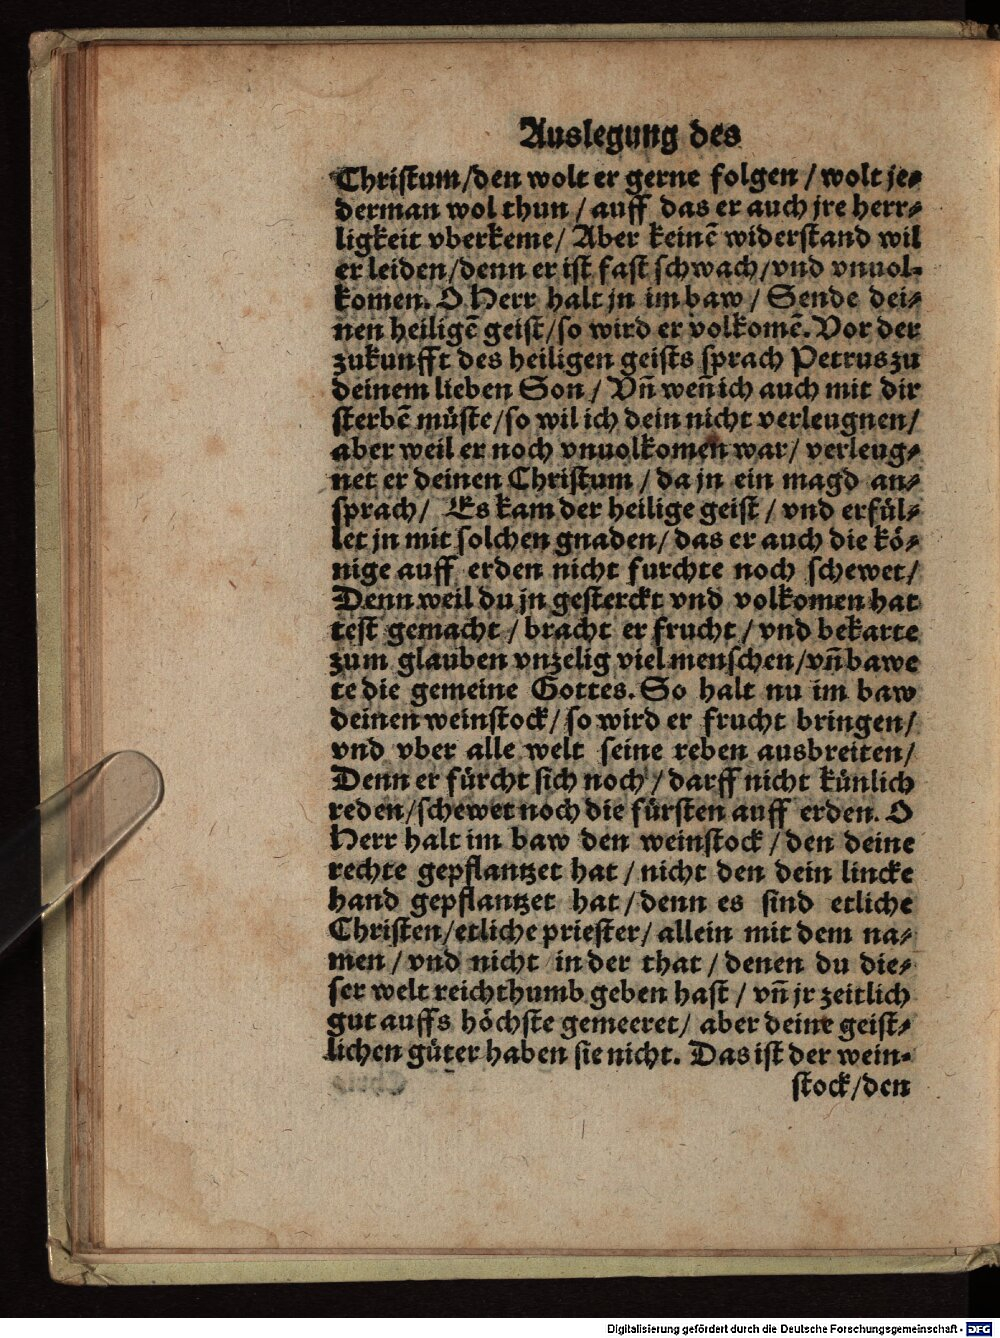 Auslegung des
Christum/den wolt er gerne folgen / wolt je⸗
derman wol thun / auff das er auch jre herr⸗
ligkeit vberkeme/ Aber keinē widerstand wil
er leiden/denn er ist fast schwach/vnd vnuol⸗
komen. O Herr halt jn im baw / Sende dei⸗
nen heiligē geist/so wird er volkomē. Vor der
zukunfft des heiligen geists sprach Petrus zu
deinem lieben Son / Vn̄ wen̄ ich auch mit dir
sterbē müste/so wil ich dein nicht verleugnen/
aber weil er noch vnuolkomen war/ verleug⸗
net er deinen Christum / da jn ein magd an⸗
sprach/ Es kam der heilige geist / vnd erfül⸗
let jn mit solchen gnaden/ das er auch die kö⸗
nige auff erden nicht furchte noch schewet/
Denn weil du jn gesterckt vnd volkomen hat
test gemacht / bracht er frucht / vnd bekarte
zum glauben vnzelig viel menschen/vn̄ bawe
te die gemeine Gottes. So halt nu im baw
deinen weinstock/ so wird er frucht bringen/
vnd vber alle welt seine reben ausbreiten/
Denn er fürcht sich noch / darff nicht künlich
reden/schewet noch die fürsten auff erden. O
Herr halt im baw den weinstock / den deine
rechte gepflantzet hat / nicht den dein lincke
hand gepflantzet hat / denn es sind etliche
Christen/etliche priester/ allein mit dem na⸗
men / vnd nicht in der that / denen du die⸗
ser welt reichthumb geben hast / vn̄ jr zeitlich
gut auffs höchste gemeeret/ aber deine geist⸗
lichen güter haben sie nicht. Das ist der wein⸗
stock/den
Digitalisierung gefördert durch die Deutsche Forschungsgemeinschaft - DFG